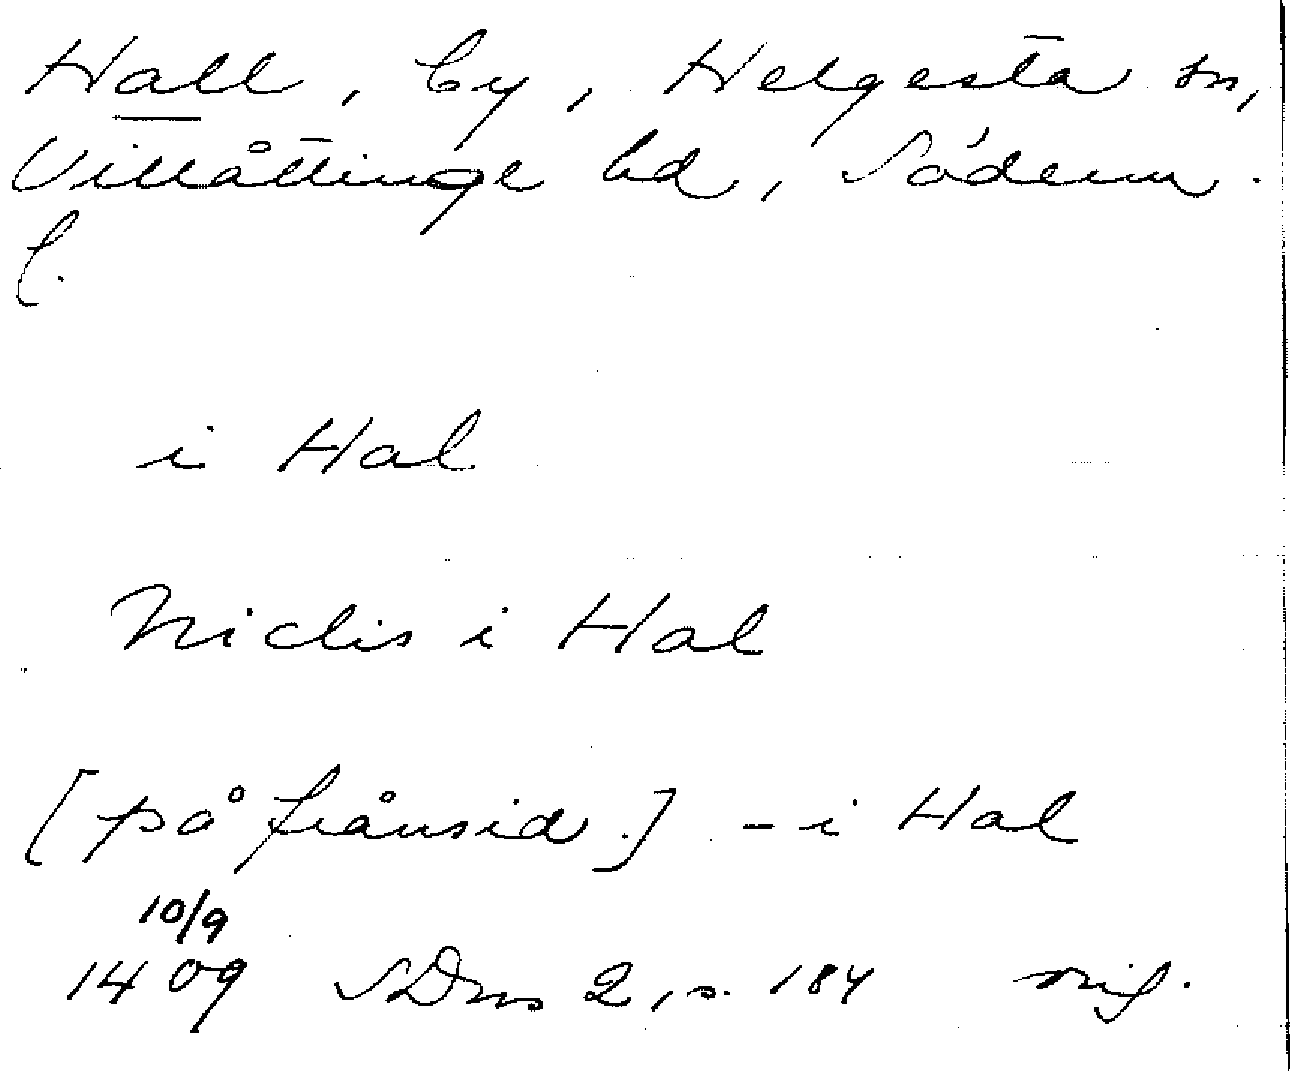 Hall, by, Helgesta sn,
Villåttinge hd, Söderm.
l.
i Hal
Niclis i Hal
[på frånsid.] - i Hal
10/9
1409 SDns 2, s. 184 mif.